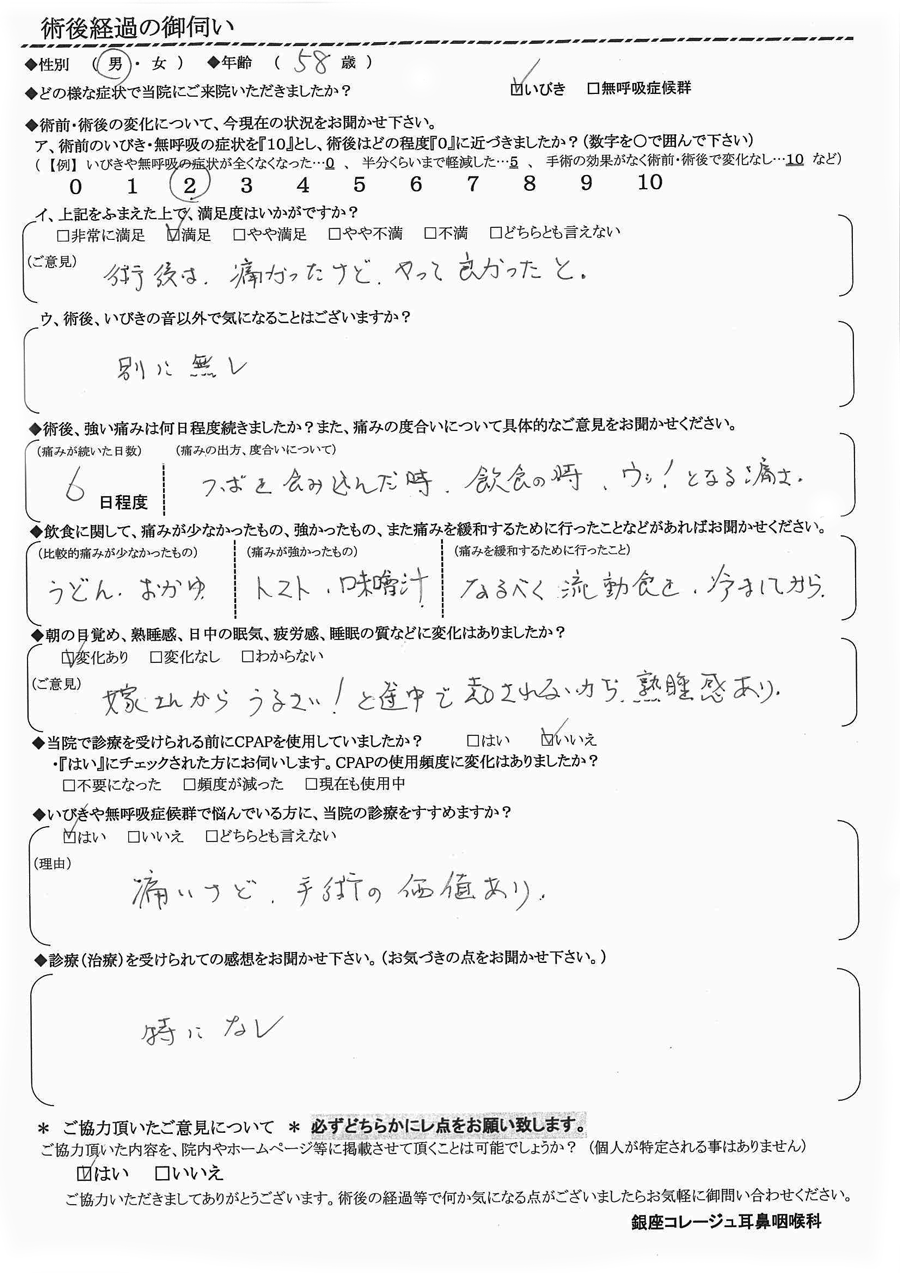 術後経過の御伺い
◆性別 （ 男 ・ 女 ） ◆年齢 （ 58 歳 ）
◆どの様な症状で当院にご来院いただきましたか？ ☑いびき □無呼吸症候群
◆術前・術後の変化について、今現在の状況をお聞かせ下さい。
ア、術前のいびき・無呼吸の症状を『10』とし、術後はどの程度『0』に近づきましたか？（数字を○で囲んで下さい）
（【例】 いびきや無呼吸の症状が全くなくなった…0 、 半分くらいまで軽減した…5 、 手術の効果がなく術前・術後で変化なし…10 など）
0 1 2 3 4 5 6 7 8 9 10
イ、上記をふまえた上で、満足度はいかがですか？
□非常に満足 ☑満足 □やや満足 □やや不満 □不満 □どちらとも言えない
（ご意見） 術後は、痛かったけど、やって良かったと。
ウ、術後、いびきの音以外で気になることはございますか？
別に無し
◆術後、強い痛みは何日程度続きましたか？また、痛みの度合いについて具体的なご意見をお聞かせください。
（痛みが続いた日数） （痛みの出方、度合いについて）
6 日程度 ツバを飲み込んだ時、飲食の時、ウッ！となる痛さ。
◆飲食に関して、痛みが少なかったもの、強かったもの、また痛みを緩和するために行ったことなどがあればお聞かせください。
（比較的痛みが少なかったもの） （痛みが強かったもの） （痛みを緩和するために行ったこと）
うどん、おかゆ トマト、味噌汁 なるべく流動食を、冷ましてから
◆朝の目覚め、熟睡感、日中の眠気、疲労感、睡眠の質などに変化はありましたか？
☑変化あり □変化なし □わからない
（ご意見） 嫁さんからうるさい！と途中で起されない分、熟睡感あり。
◆当院で診療を受けられる前にCPAPを使用していましたか？ □はい ☑いいえ
・『はい』にチェックされた方にお伺いします。CPAPの使用頻度に変化はありましたか？
□不要になった □頻度が減った □現在も使用中
◆いびきや無呼吸症候群で悩んでいる方に、当院の診療をすすめますか？
☑はい □いいえ □どちらとも言えない
（理由）
痛いけど、手術の価値あり。
◆診療（治療）を受けられての感想をお聞かせ下さい。（お気づきの点をお聞かせ下さい。）
特になし
＊ ご協力頂いたご意見について ＊ 必ずどちらかにレ点をお願い致します。
ご協力頂いた内容を、院内やホームページ等に掲載させて頂くことは可能でしょうか？（個人が特定される事はありません）
☑はい □いいえ
ご協力いただきましてありがとうございます。術後の経過等で何か気になる点がございましたらお気軽に御問い合わせください。
銀座コレージュ耳鼻咽喉科